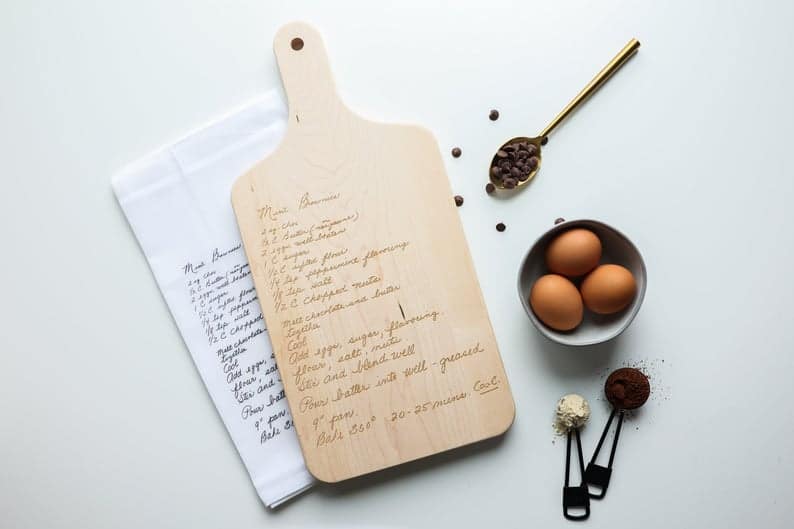 Mint Brownies
2 oz. choc
1/2 C. Butter (non margarine)
2 eggs well beaten
1 C sugar
1/2 C. sifted flour
1/4 tsp peppermint flavoring
1/8 tsp. salt
1/2 C chopped nuts
Melt chocolate and butter
together
Cool
Add eggs, sugar, flavoring.
flour, salt, nuts
Stir and blend well
Pour batter into well-greased
9" pan.
Bake 350° 20-25 mins. Cool.
Mint Brownies
2 oz. choc
1/2 C. Butter
2 eggs well beaten
1 C sugar
1/2 C. sifted flour
1/4 tsp peppermint
1/8 tsp. salt
1/2 C chopped
Melt chocolate
together
Cool
Add eggs,
flour, sal
Stir and
Pour batt
9" pan.
Bake